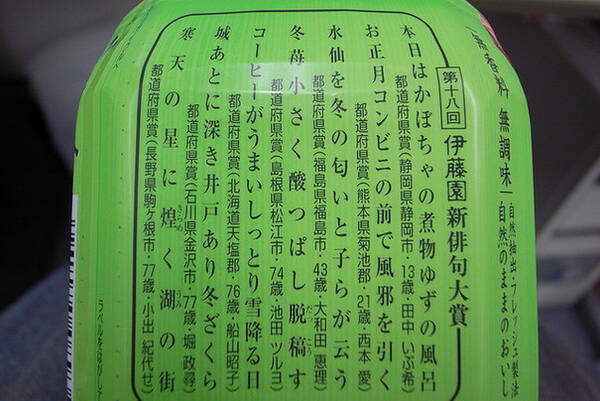 無香料 無調味
自然抽出・フレッシュ製法
自然のままのおいし
第十八回 伊藤園新俳句大賞
本日はかぼちゃの煮物ゆずの風呂
都道府県賞(静岡県静岡市・13歳・田中いぶ希)
お正月コンビニの前で風邪を引く
都道府県賞(熊本県菊池郡・21歳・西本 愛)
水仙を冬の匂いと子らが云う
都道府県賞(福島県福島市・43歳・大和田 恵理)
冬苺小さく酸つぱし脱稿す
だっこう
都道府県賞(島根県松江市・74歳・池田 ツルヨ)
コーヒーがうまいしっとり雪降る日
都道府県賞(北海道天塩郡・76歳・船山昭子)
城あとに深き井戸あり冬ざくら
都道府県賞(石川県金沢市・77歳・堀 政尋)
寒天の星に煌く湖の街
きらめ うみ
都道府県賞(長野県駒ヶ根市・77歳・小出 紀代せ)
ラベルをはがした